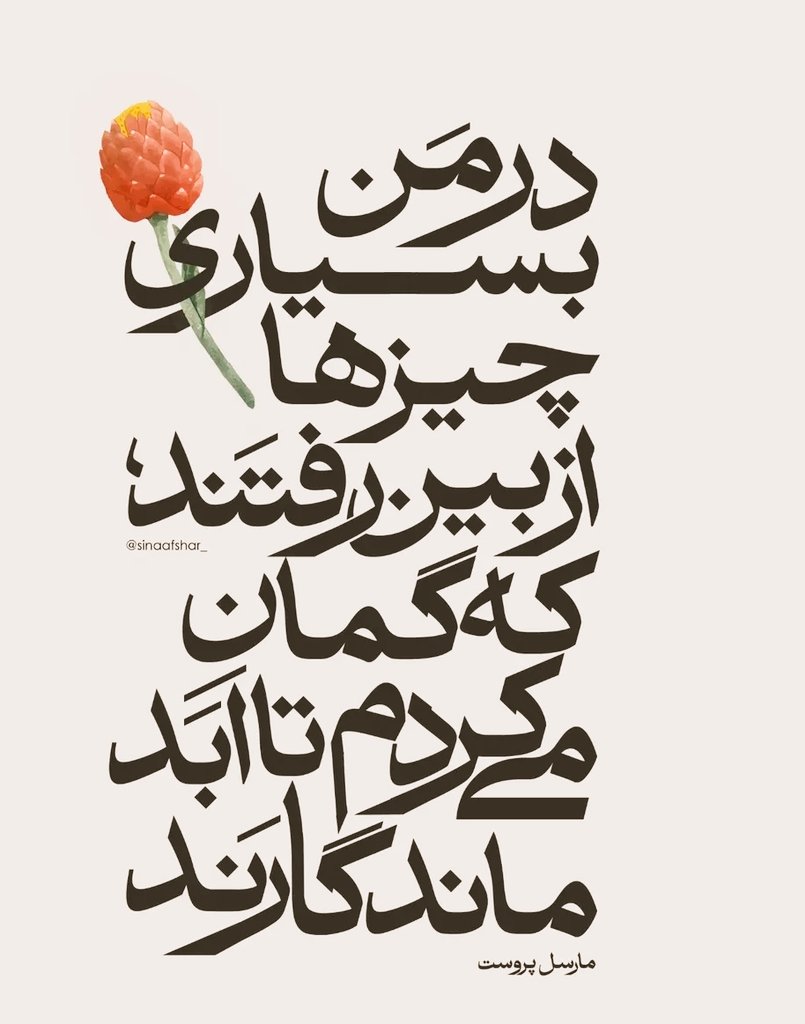 در مَن
بسیاری
چیزها
از بین رفتَند،
@sinaafshar_
که گمان
می‌کردم تا ابَد
ماندگارَند
مارسل پروست